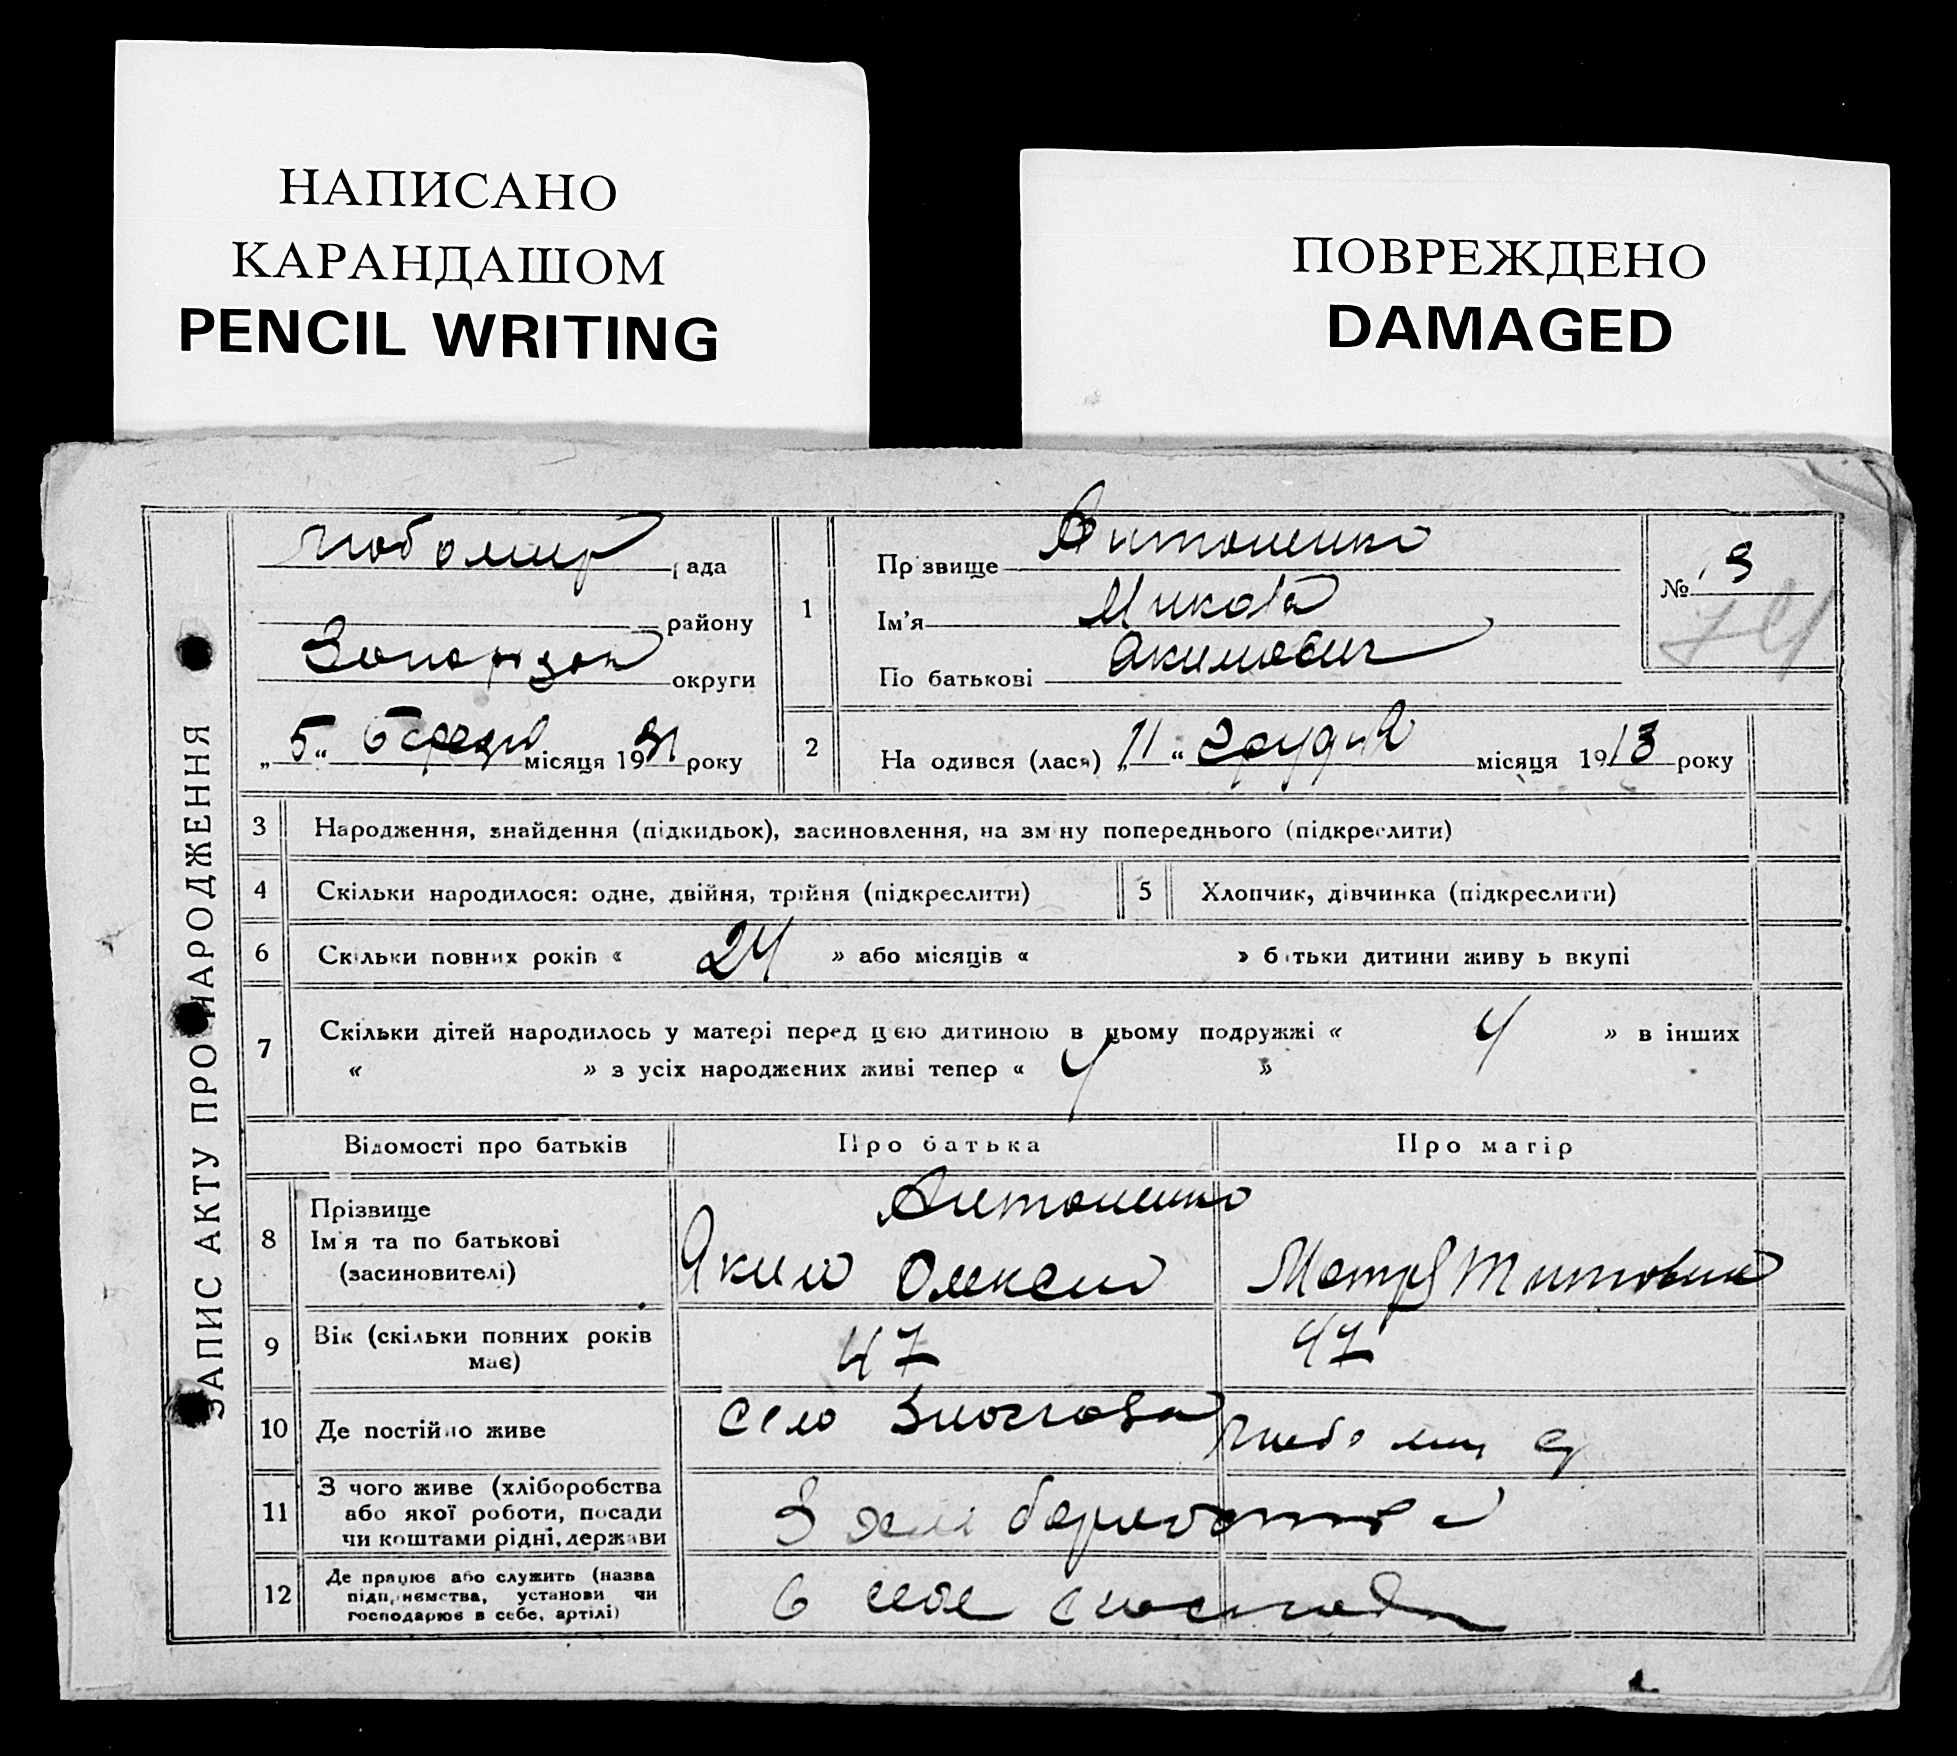 НАПИСАНО
КАРАНДАШОМ
PENCIL WRITING
ПОВРЕЖДЕНО
DAMAGED
ЗАПИС АКТУ ПРО НАРОДЖЕННЯ
Любомир рада
району
округи
„ 5 “ місяця 1931 року
1
Прізвище Антоненко
Ім'я Микола
По батькові Акимович
№
74
2
На одився (лася) „ 11 “ Грудня місяця 1913 року
3 Народження, знайдення (підкидьок), засиновлення, на зміну попереднього (підкреслити)
4 Скільки народилося: одне, двійня, трійня (підкреслити) 5 Хлопчик, дівчинка (підкреслити)
6 Скільки повних років « 24 » або місяців « » батьки дитини живуть вкупі
7 Скільки дітей народилось у матері перед цією дитиною в цьому подружжі « 4 » в інших
« » з усіх народжених живі тепер « 4 »
Відомості про батьків Про батька Про матір
8 Прізвище
Ім'я та по батькові
(засиновителі)
Антоненко
Яким Олексій
9 Вік (скільки повних років
має)
47 47
10 Де постійно живе село
11 З чого живе (хліборобства
або якої роботи, посади
чи коштами рідні, держави
З хліборобства
12 Де працює або служить (назва
підприємства, установи чи
господарює в себе, артілі)
в себе